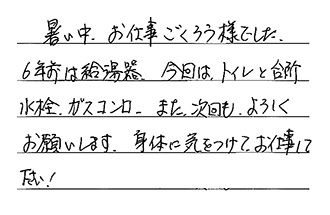 暑い中、お仕事ごくろう様でした。
6年前は給湯器、今回は、トイレと台所
水栓、ガスコンロ。また、次回も、よろしく
お願いします。身体に気をつけて、お仕事して
下さい！